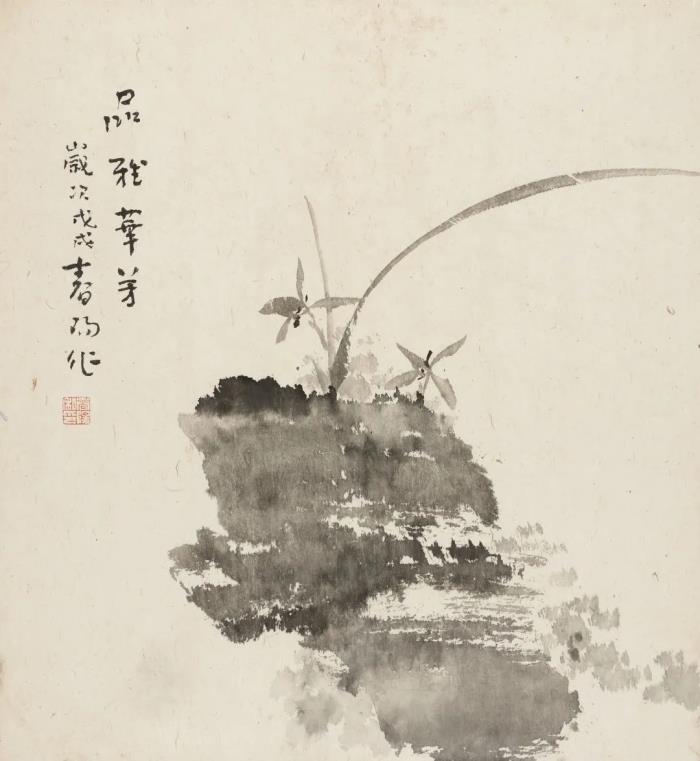 品雅華芳
歲次戊戌春陽作